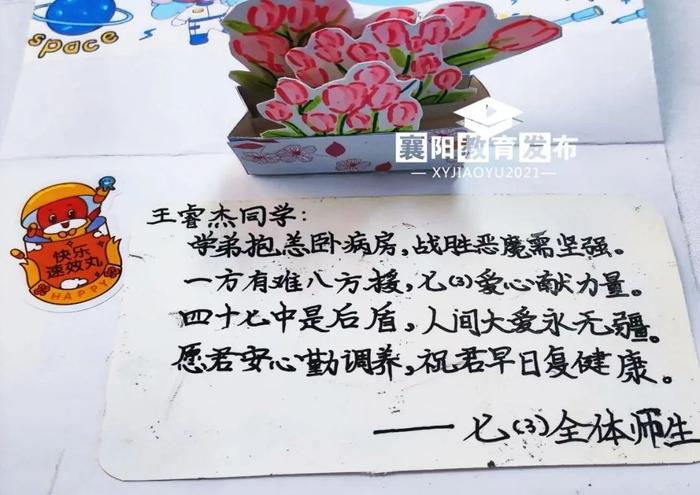 space
襄阳教育发布
XYJIAOYU2021
快乐
速效丸
HAPPY
王睿杰同学:
学弟抱恙卧病房,战胜恶魔需坚强。
一方有难八方援,七(3)爱心献力量。
四十七中是后盾,人间大爱永无疆。
愿君安心勤调养,祝君早日复健康。
——七(3)全体师生